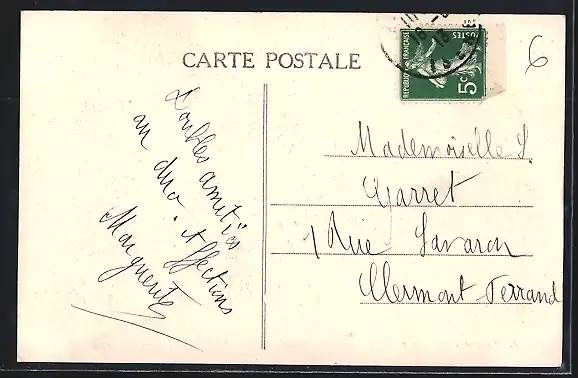 CARTE POSTALE
REPUBLIQUE FRANÇAISE
POSTES
5c
6
Doubles amitiés
au duo. Affections
Marguerite
Mademoiselle S.
Garret
1 Rue Savaron
Clermont Ferrand